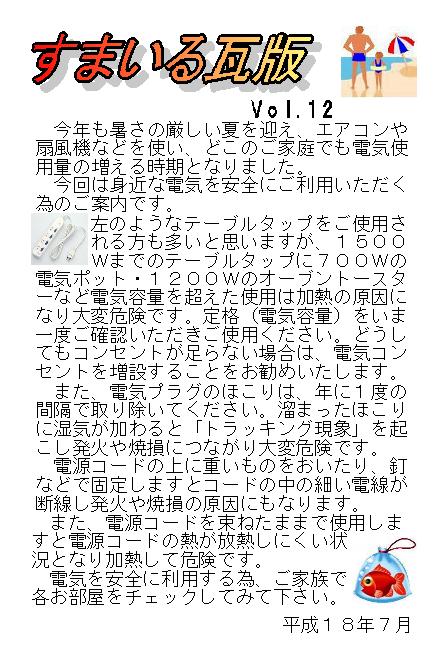 すまいる瓦版
Ｖｏｌ.１２
今年も暑さの厳しい夏を迎え、エアコンや
扇風機などを使い、どこのご家庭でも電気使
用量の増える時期となりました。
今回は身近な電気を安全にご利用いただく
為のご案内です。
左のようなテーブルタップをご使用さ
れる方も多いと思いますが、１５００
Ｗまでのテーブルタップに７００Ｗの
電気ポット・１２００Ｗのオーブントースタ
ーなど電気容量を超えた使用は加熱の原因に
なり大変危険です。定格（電気容量）をいま
一度ご確認いただきご使用ください。どうし
てもコンセントが足らない場合は、電気コン
セントを増設することをお勧めいたします。
また、電気プラグのほこりは、年に１度の
間隔で取り除いてください。溜まったほこり
に湿気が加わると「トラッキング現象」を起
こし発火や焼損につながり大変危険です。
電源コードの上に重いものをおいたり、釘
などで固定しますとコードの中の細い電線が
断線し発火や焼損の原因にもなります。
また、電源コードを束ねたままで使用しま
すと電源コードの熱が放熱しにくい状
況となり加熱して危険です。
電気を安全に利用する為、ご家族で
各お部屋をチェックしてみて下さい。
平成１８年７月